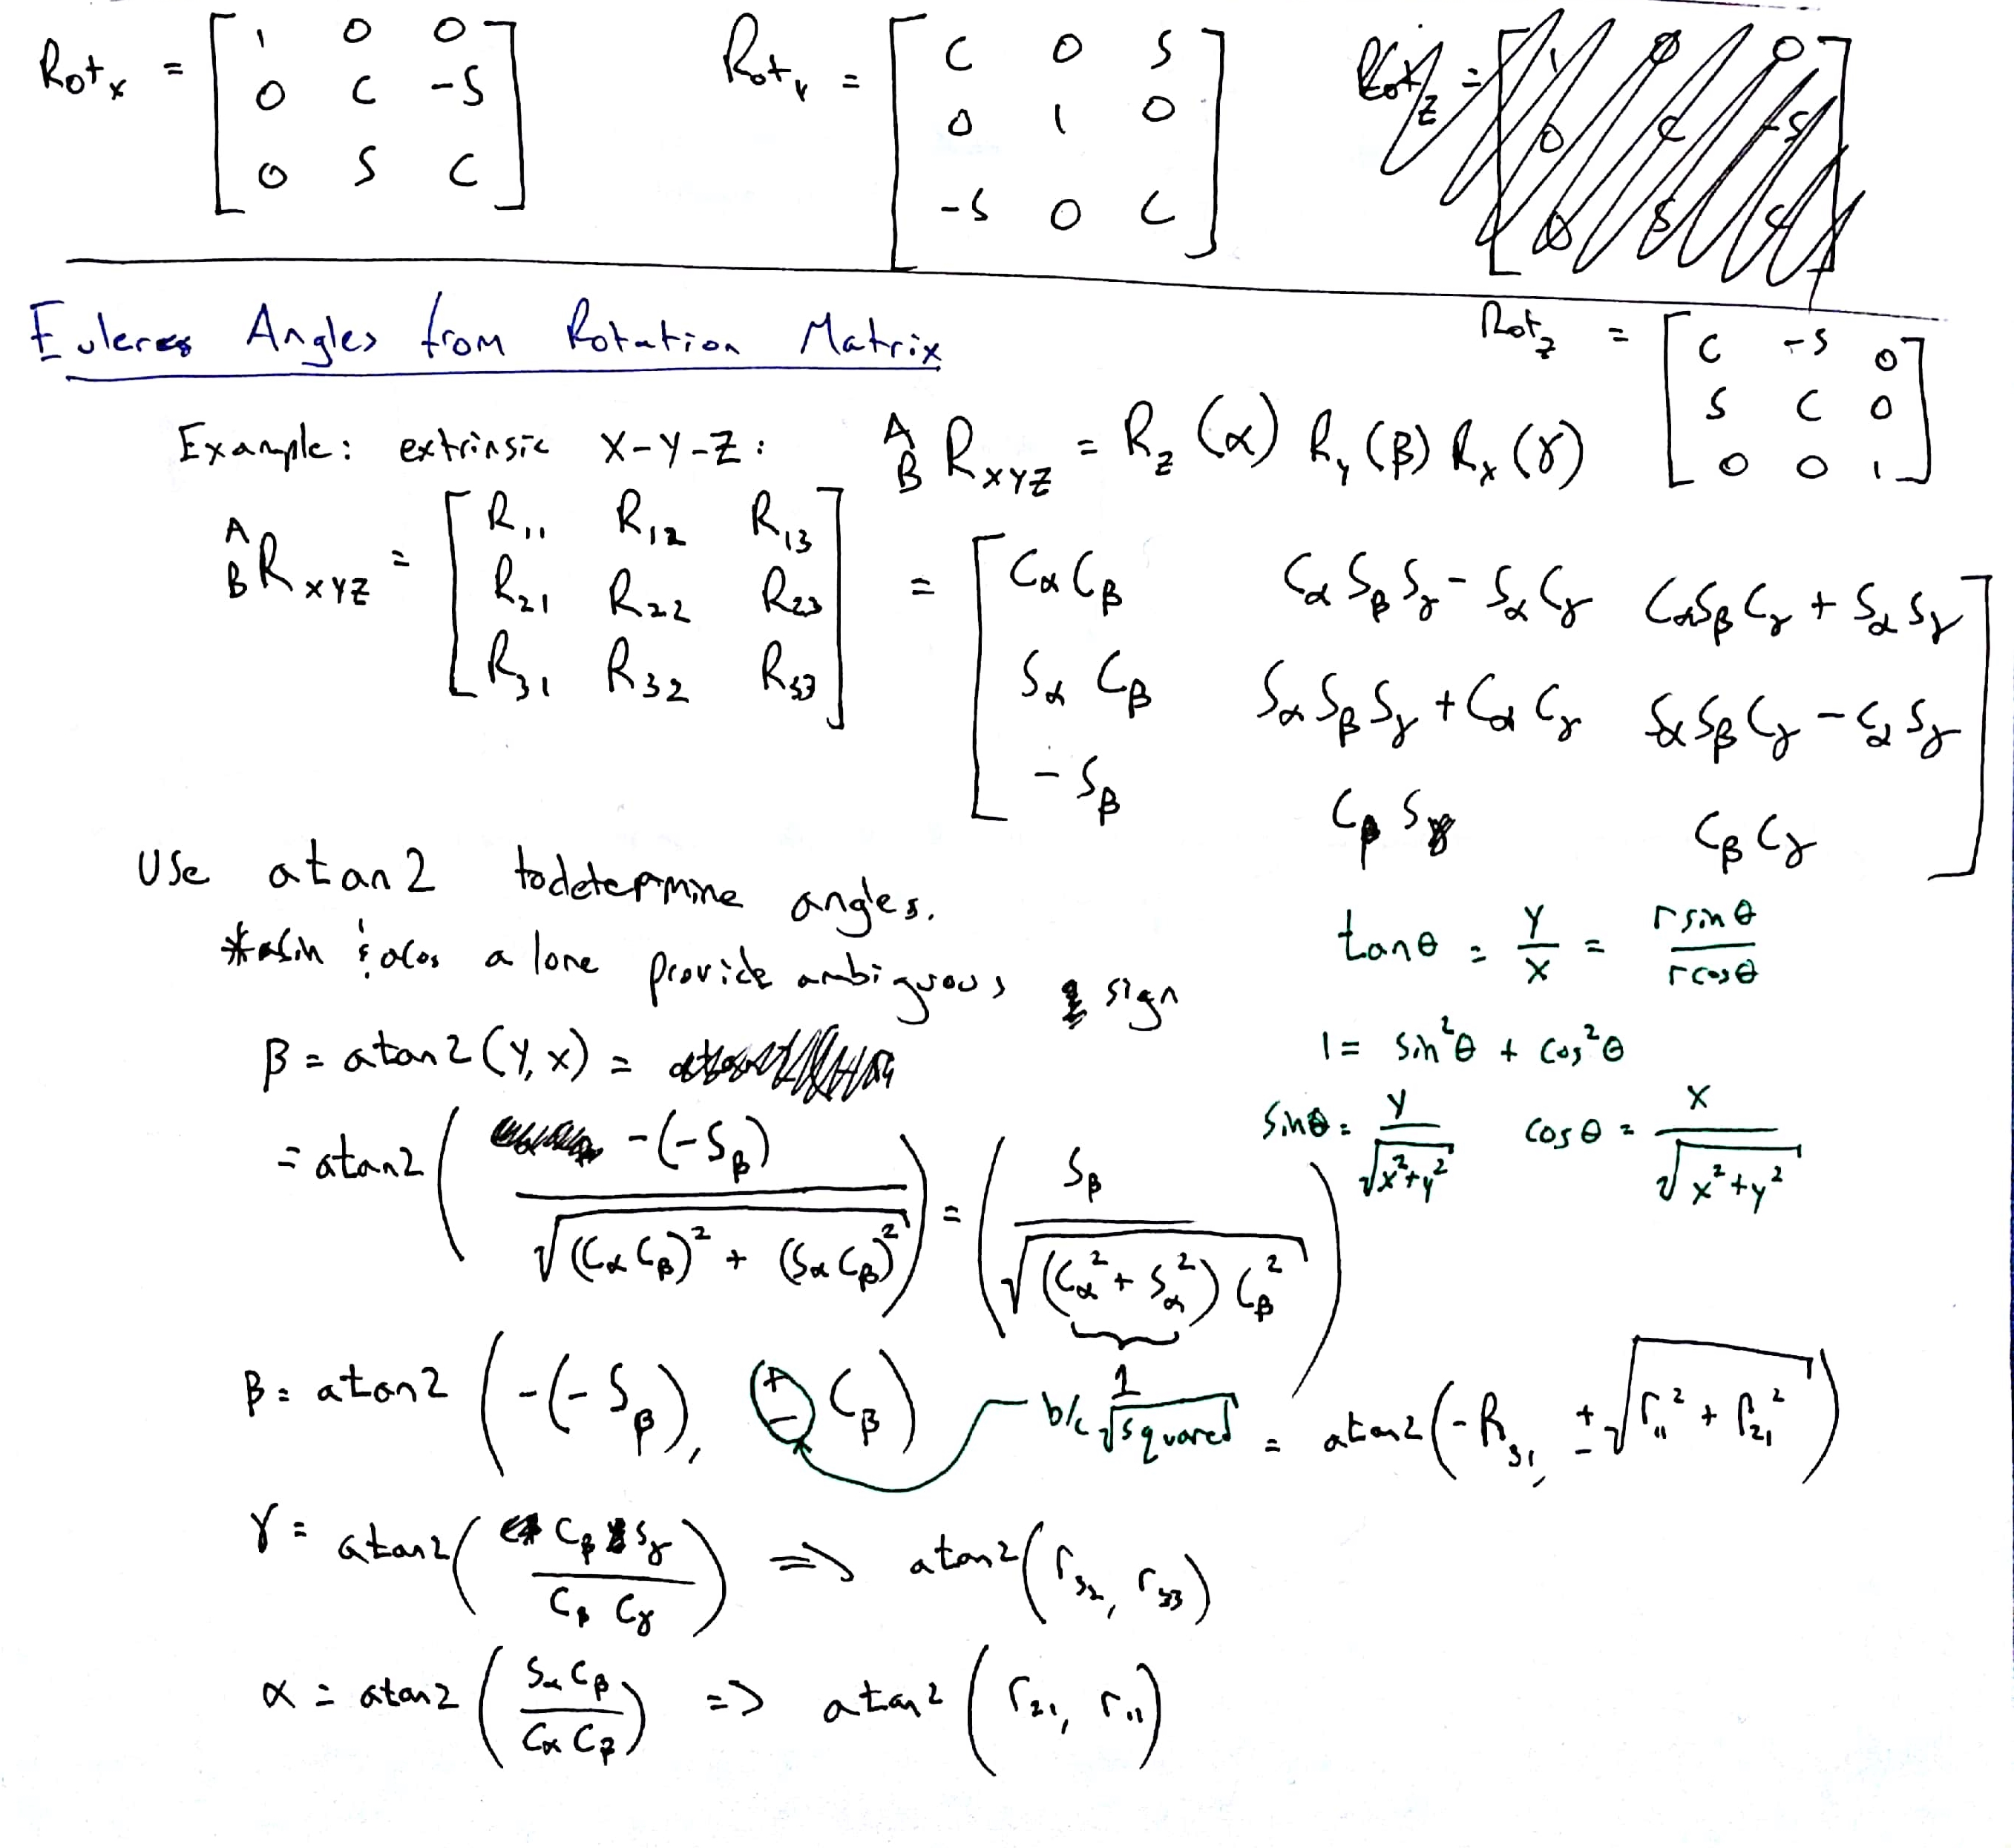 Rot_x = [ 1 0 0 ; 0 C -S ; 0 S C ]
Rot_y = [ C 0 S ; 0 1 0 ; -S 0 C ]
Rot_z = [ 1 0 0 ; 0 C -S ; 0 S C ]
Rot_z = [ C -S 0 ; S C 0 ; 0 0 1 ]
Euler Angles from Rotation Matrix
Example: extrinsic X-Y-Z: ^A_B R_XYZ = R_z (α) R_y (β) R_x (γ)
^A_B R_XYZ = [ R_11 R_12 R_13 ; R_21 R_22 R_23 ; R_31 R_32 R_33 ] = [ Cα Cβ CαSβSγ - SαCγ CαSβCγ + SαSγ ; Sα Cβ SαSβSγ + CαCγ SαSβCγ - CαSγ ; -Sβ CβSγ CβCγ ]
Use atan2 to determine angles.
*asin & acos alone provide ambiguous sign
tanθ = y/x = r sinθ / r cosθ
1 = sin²θ + cos²θ
sinθ = y/√(x²+y²) cosθ = x/√(x²+y²)
β = atan2(y, x) =
= atan2( -(-Sβ) / √((CαCβ)² + (SαCβ)²) ) = ( Sβ / √((Cα² + Sα²) Cβ²) )
1
β = atan2( -(-Sβ), ± Cβ ) b/c √squared = atan2( -R_31, ±√(r_11² + r_21²) )
γ = atan2( CβSγ / CβCγ ) => atan2( r_32, r_33 )
α = atan2( SαCβ / CαCβ ) => atan2( r_21, r_11 )